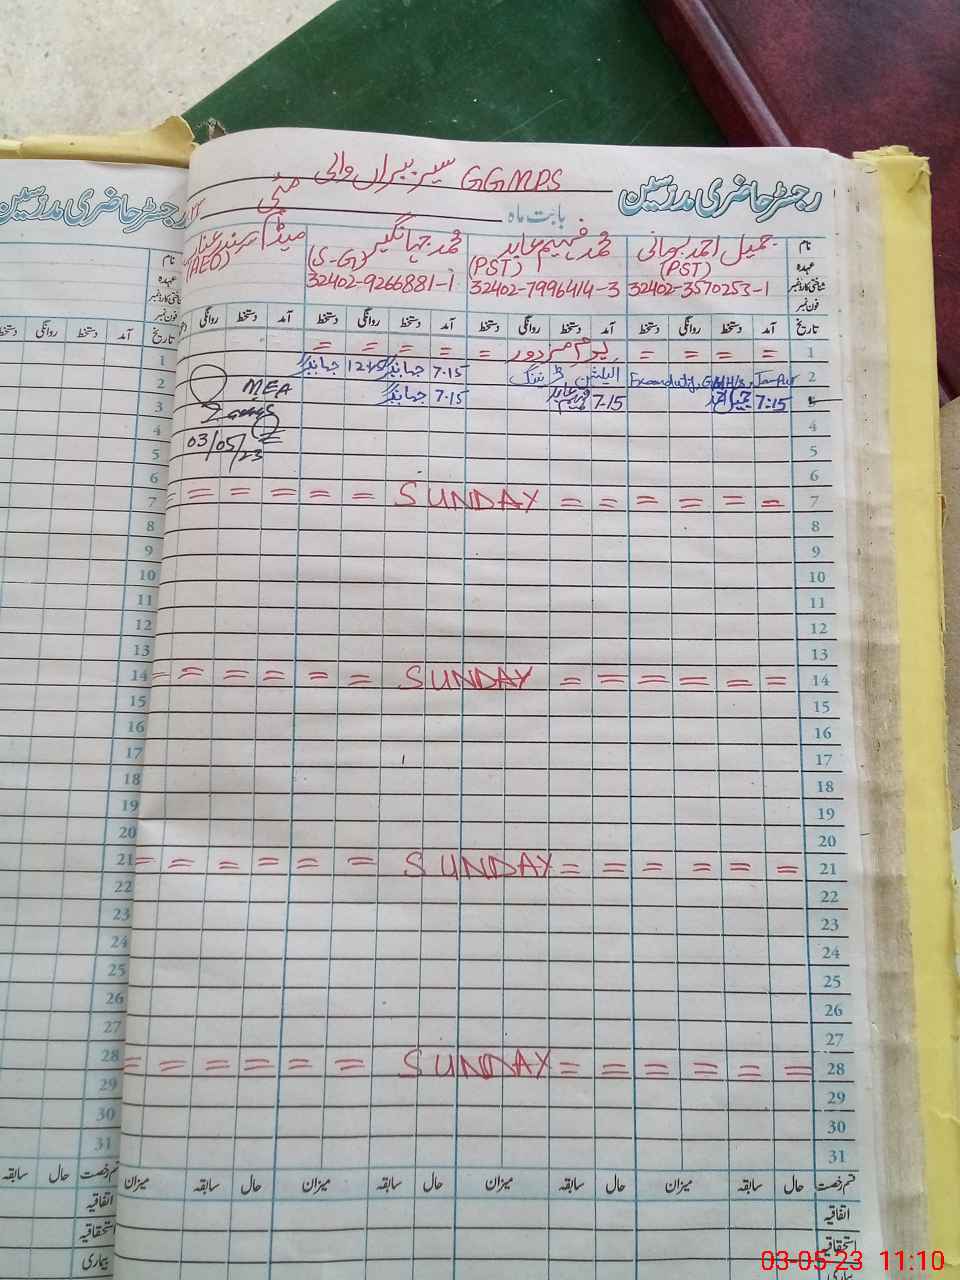 رجسٹر حاضری مدرسین
GGMPS
بابت ماہ
مئی
نام
عہدہ
فون نمبر
جمیل احمد
(PST)
32402-3570253-1
محمد فہیم عابد
(PST)
32402-7996414-3
محمد جہانگیر
(S-G)
32402-9266881-1
میڈم
(AEO)
تاریخ آمد دستخط روانگی دستخط آمد دستخط روانگی دستخط آمد دستخط روانگی دستخط آمد دستخط روانگی
1 = = = = یوم مزدور = = = = =
2 Exam duty, الیکشن 7.15 جہانگیر 12:45 جہانگیر
3 7:15 7.15 7.15 جہانگیر
MEA
4
03/05/23
5
6
7 = = = = = SUNDAY = = = = = =
8
9
10
11
12
13
14 = = = = = = SUNDAY = = = = = =
15
16
17
18
19
20
21 = = = = = = SUNDAY = = = = = =
22
23
24
25
26
27
28 = = = = = = SUNDAY = = = = = =
29
30
31
قسم رخصت حال سابقہ میزان حال سابقہ میزان حال سابقہ میزان حال سابقہ میزان
اتفاقیہ
استحقاقیہ
بیماری
رجسٹر حاضری مدرسین
نام
عہدہ
فون نمبر
تاریخ آمد دستخط روانگی دستخط
1
2
3
4
5
6
7
8
9
10
11
12
13
14
15
16
17
18
19
20
21
22
23
24
25
26
27
28
29
30
31
قسم رخصت حال سابقہ
اتفاقیہ
استحقاقیہ
بیماری
03-05-23 11:10